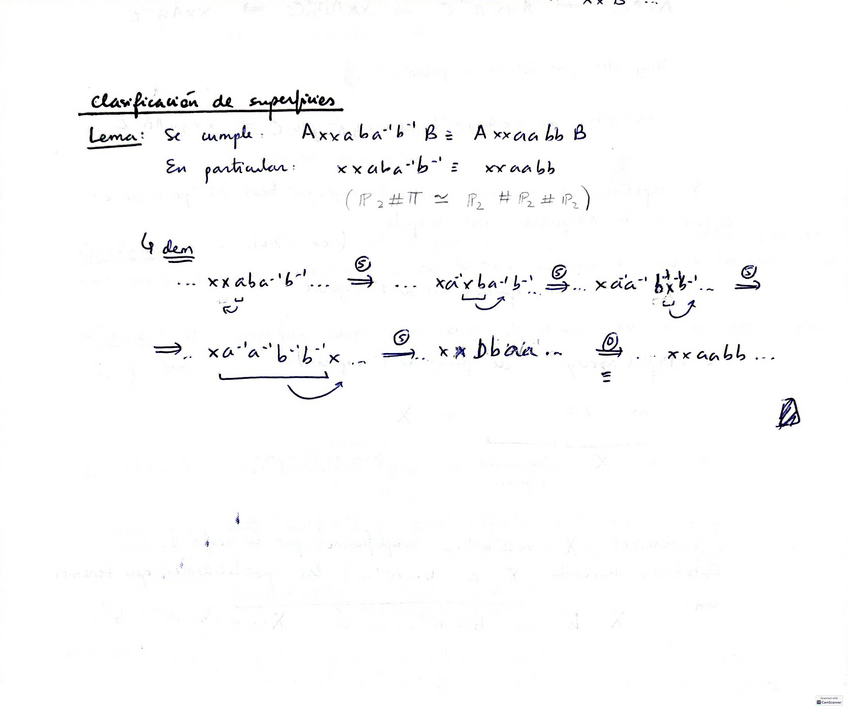 x x B ...
Clasificación de superficies
Lema: Se cumple: A x x a b a⁻¹ b⁻¹ B ≡ A x x a a b b B
En particular: x x a b a⁻¹ b⁻¹ ≡ x x a a b b
( ℙ₂ # 𝕋 ≃ ℙ₂ # ℙ₂ # ℙ₂ )
↳ dem
... x x a b a⁻¹ b⁻¹ ... ⇒ ⑤ ... x a⁻¹ x b a⁻¹ b⁻¹ ... ⇒ ⑤ ... x a⁻¹ a⁻¹ b⁻¹ x b⁻¹ ... ⇒ ⑤
⇒ ... x a⁻¹ a⁻¹ b⁻¹ b⁻¹ x ... ⇒ ⑤ ... x x b b a a ... ⇒ ⓪ ≡ ... x x a a b b ...
CamScanner